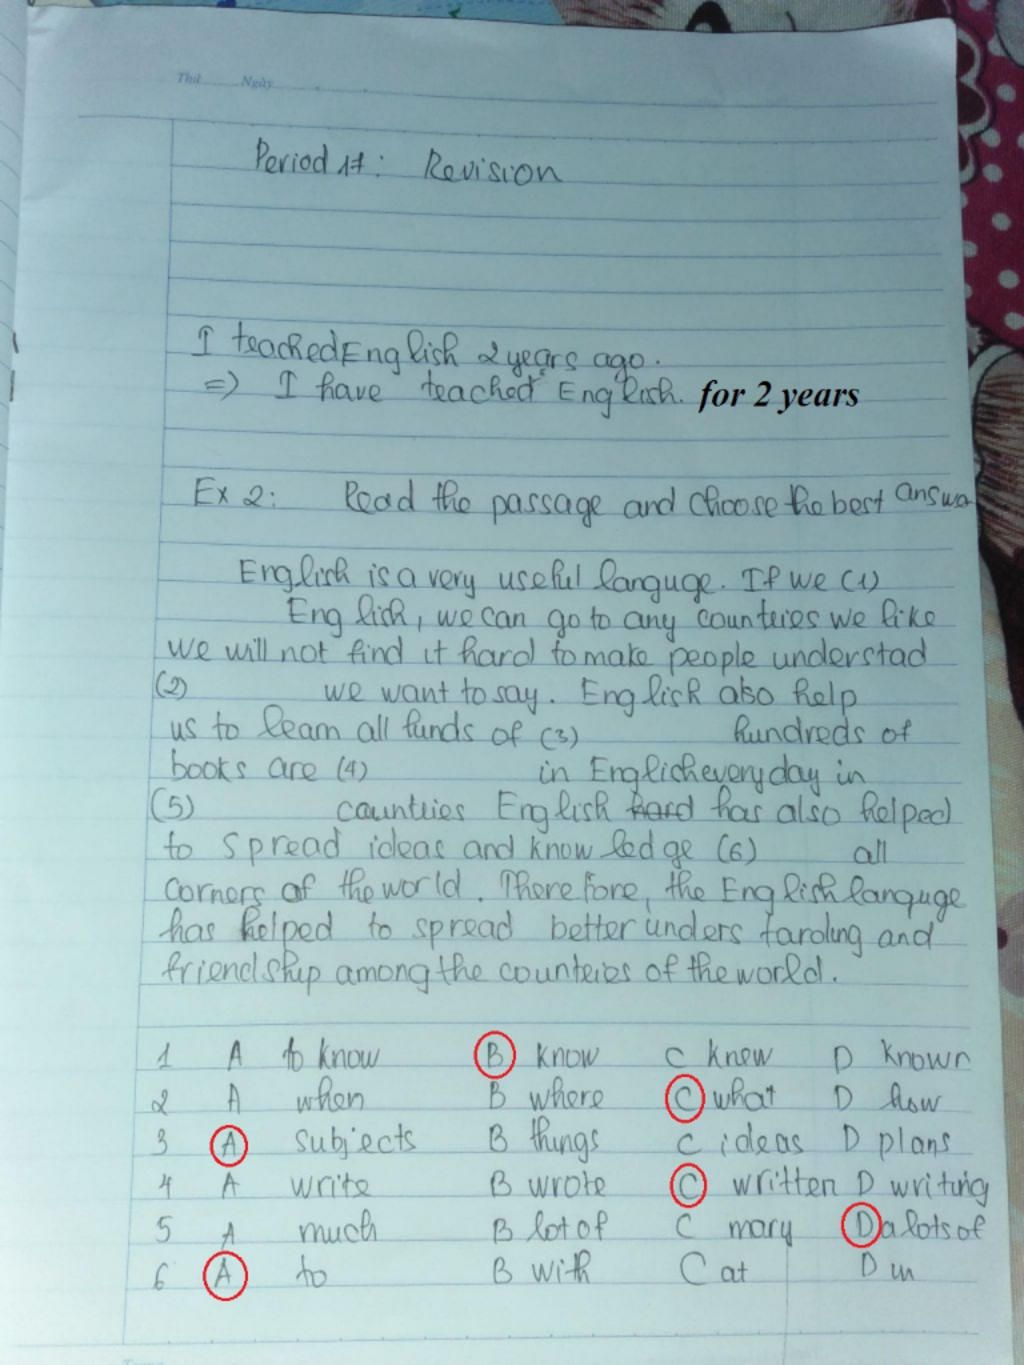 Thứ Ngày
Period 17: Revision
I teached English 2 years ago.
=> I have teached English. for 2 years
Ex 2: Read the passage and choose the best answer
English is a very useful languge. If we (1)
English, we can go to any counteries we like
we will not find it hard to make people understad
(2) we want to say. English also help
us to learn all funds of (3) hundreds of
books are (4) in Englich everyday in
(5) counteries English hard has also helped
to spread ideas and knowledge (6) all
corners of the world. Therefore, the English languge
has helped to spread better understarding and
friendship among the counteries of the world.
1 A to know B know C knew D known
2 A when B where C what D how
3 A subjects B things C ideas D plans
4 A write B wrote C written D writing
5 A much B lot of C many D a lots of
6 A to B with C at D in